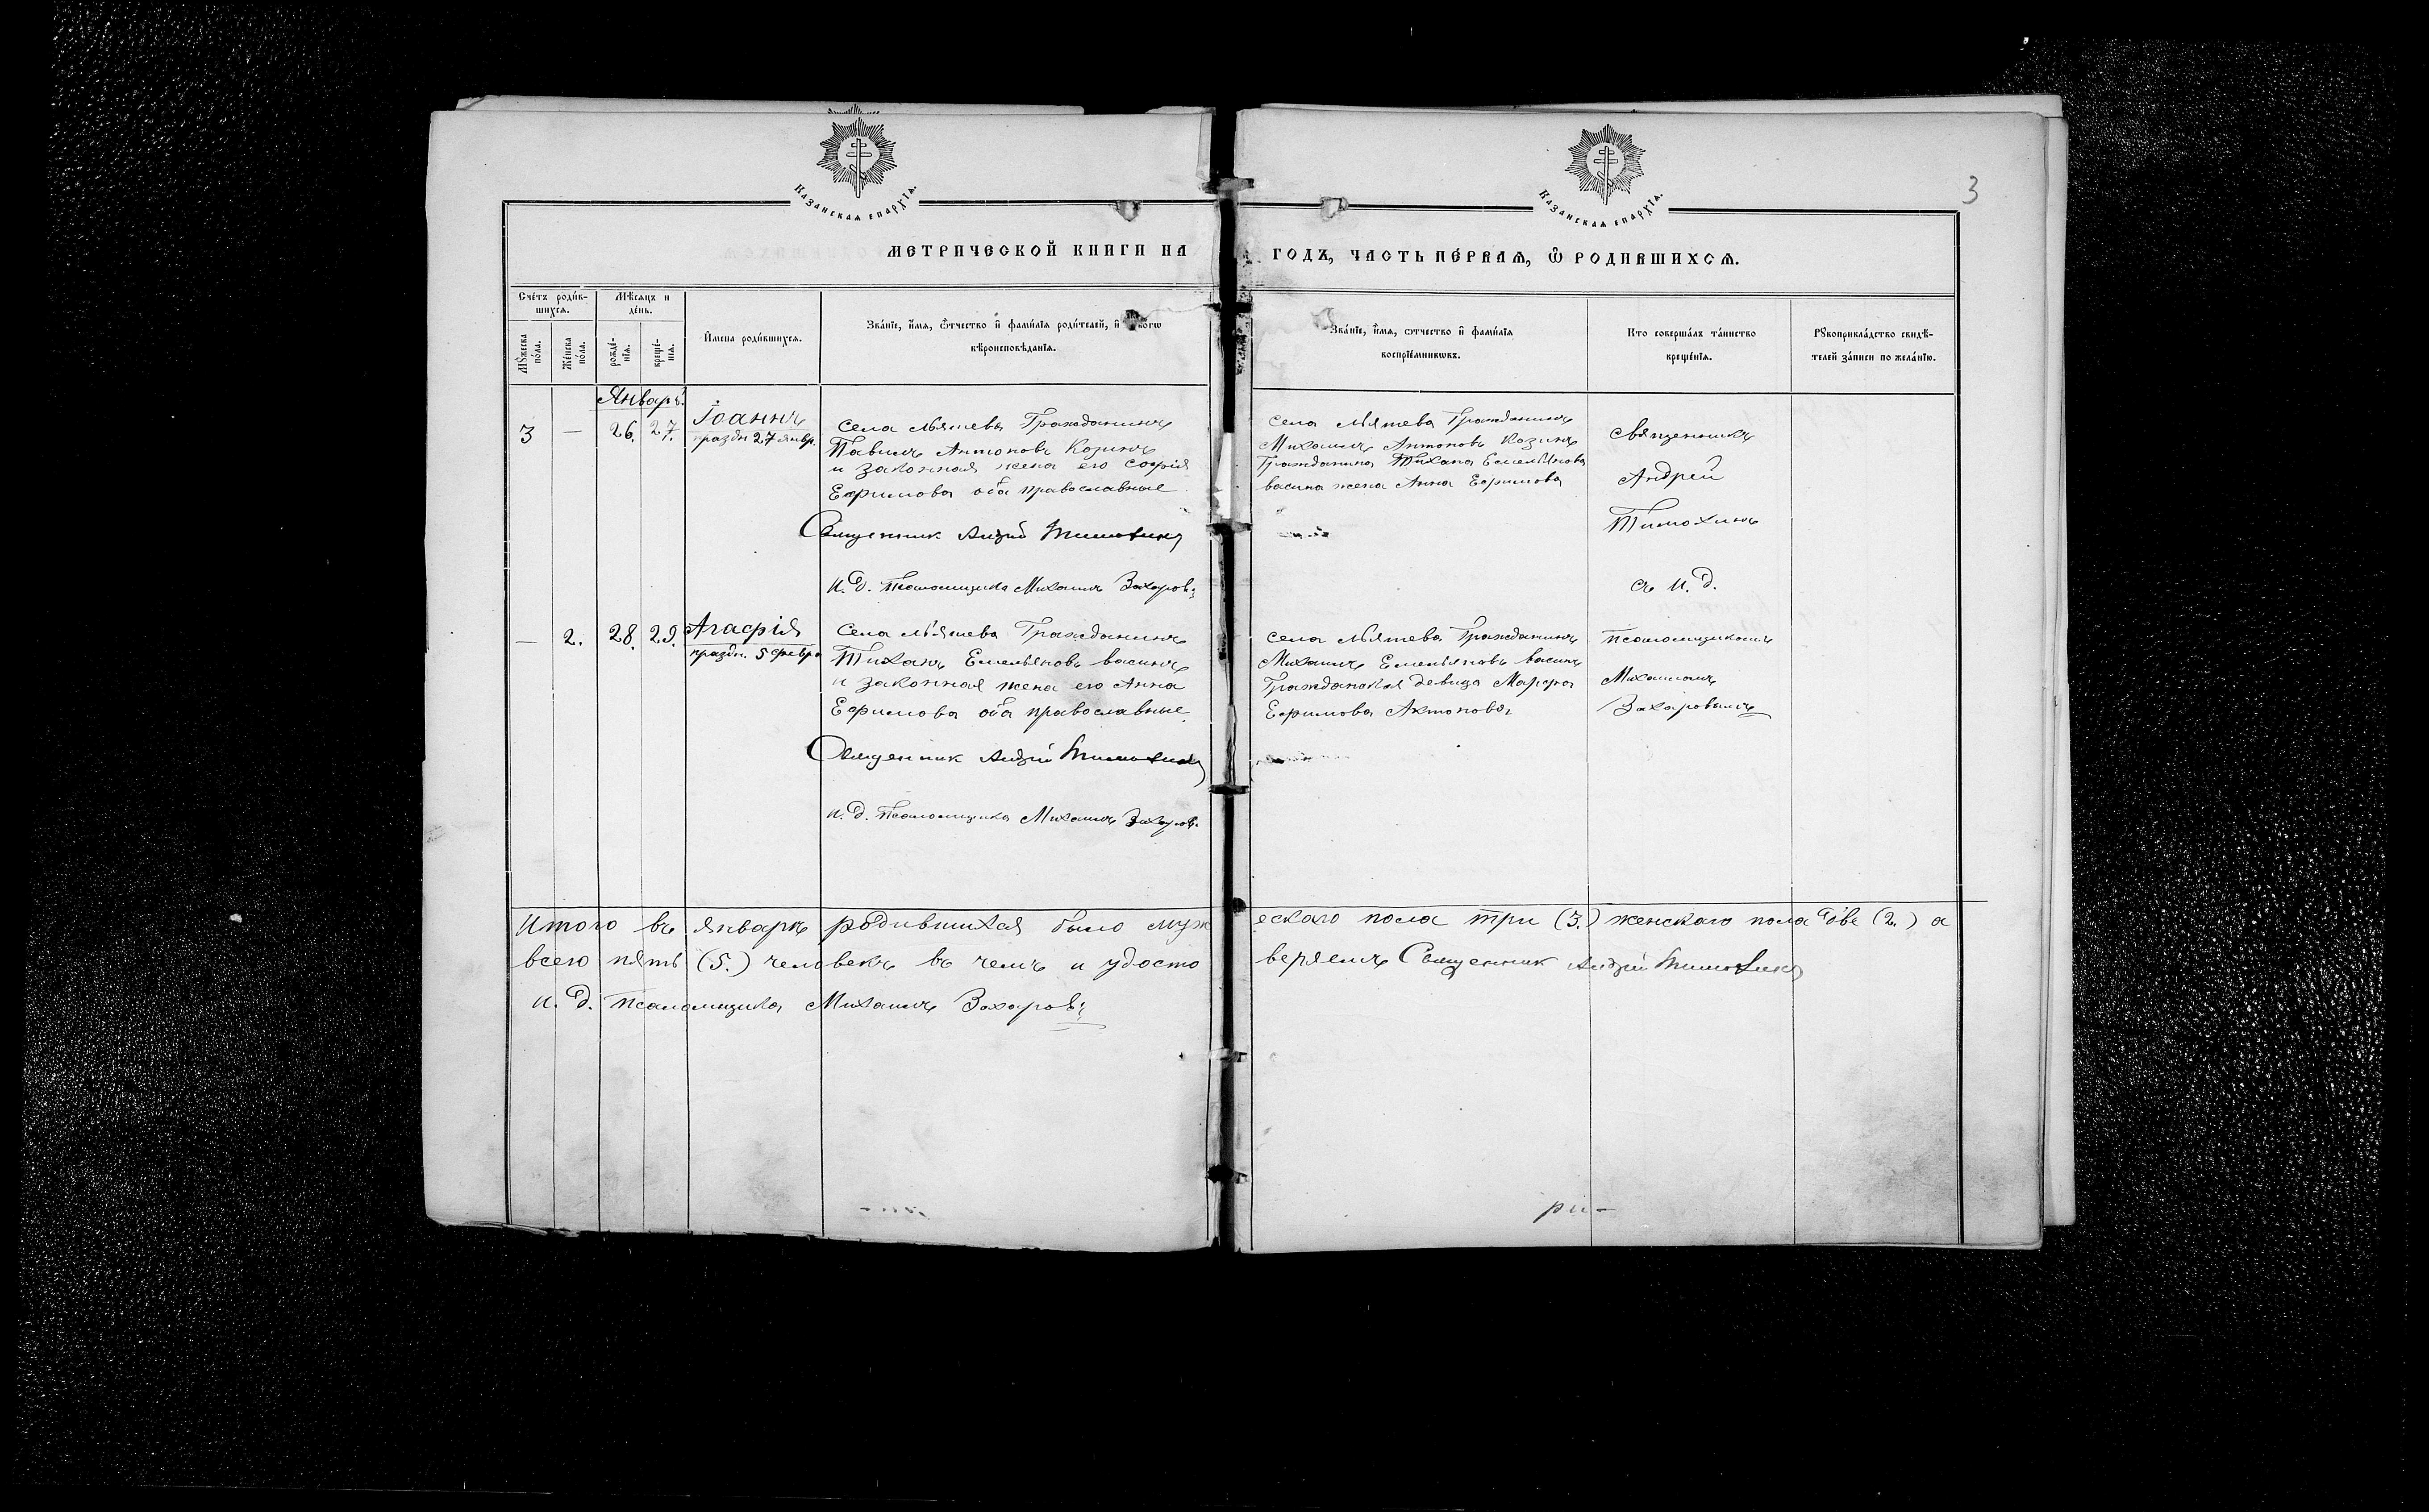 КАЗАНСКАѦ ЕПАРХІѦ.
КАЗАНСКАѦ ЕПАРХІѦ.
3
МЕТРИЧЕСКОЙ КНИГИ НА ГОДЪ, ЧАСТЬ ПЕ́РВАѦ, Ѽ РОДИВШИХСѦ.
Сче́тъ роди́в-
шихсѧ.
Мѹ́жеска по́ла.
Же́нска по́ла.
Мѣ́сѧцъ и
де́нь.
рожде́-нїѧ.
креще́-нїѧ.
И҆мена роди́вшихсѧ.
Зва́нїе, и҆́мѧ, ѻ҆́тчество и҆ фами́лїѧ роди́телей, и҆
вѣроисповѣ́данїѧ.
Зва́нїе, и҆́мѧ, ѻтчество и҆ фами́лїѧ
воспрїе́мникѡвъ.
Кто соверша́лъ та́инство
креще́нїѧ.
Рѹкоприкла́дство свидѣ́-
телей за́писи по жела́нїю.
Январь.
3 — 26. 27.
Іоаннъ
праздн 27 январ.
села Гражданинъ
Павилъ Антоновъ Козинъ
и законная жена его Софія
Ефимова оба православные
Священник Андрей Тимохинъ
и. д. Псаломщика Михаилъ Захаровъ
села Гражданинъ
Михаилъ Антоновъ Козинъ
Гражданина Тихана Емельянова
васина жена Анна Ефимова
Священникъ
Андрей
Тимохинъ
съ и. д.
псаломщикомъ
Михаиломъ
Захаровымъ
— 2. 28. 29.
Агафія
праздн. 5 февра
Села Гражданинъ
Тиханъ Емельяновъ васинъ
и законная жена его Анна
Ефимова оба православные
Священник Андрей Тимохинъ
и. д. Псаломщика Михаилъ Захаровъ
села Гражданинъ
Михаилъ Емельяновъ васинъ
Гражданская девица Марфа
Ефимова Антонова
Итого въ январъ родившихся было мужескаго пола три (3.) женскаго пола две (2.) а
всего пять (5.) человекъ въ чемъ и удостоверяемъ Священник Андрей Тимохинъ
и. д. псаломщика Михаилъ Захаровъ
ри-